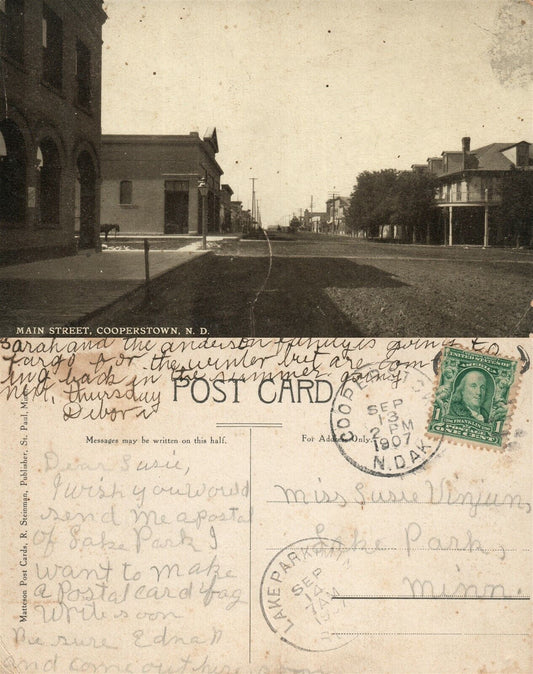 MAIN STREET, COOPERSTOWN, N. D.
Sarah and the anderson family is going to
Fargo for the winter but are com
ing back in the summer going
next Thursday
Debora
POST CARD
Messages may be written on this half.
For Address Only.
Matteson Post Cards, R. Steinman, Publisher, St. Paul,
COOPERSTOWN
SEP
13
2 PM
1907
N.DAK.
UNITED STATES POSTAGE
FRANKLIN
ONE CENT
Dear Susie,
I wish you would
send me a postal
of Lake Park I
want to make
a Postal card bag
Write soon
Be sure Edna
and come out here soon
Miss Susie
Lake Park,
Minn.
LAKE PARK
SEP
14